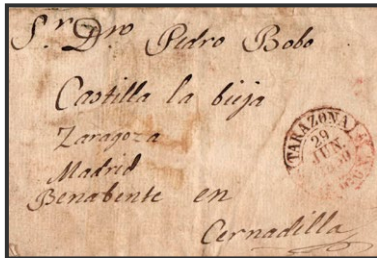 Sr. Dno Pedro Bobo
Castilla la bieja
Zaragoza
Madrid
Benabente en
Cernadilla
TARAZONA
29
JUN.